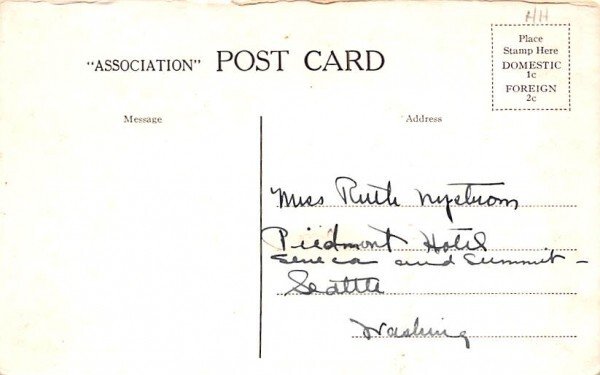 HH
"ASSOCIATION" POST CARD
Place
Stamp Here
DOMESTIC
1c
FOREIGN
2c
Message
Address
Miss Ruth Nystrom
Piedmont Hotel
Seneca and Summit -
Seattle
Washing